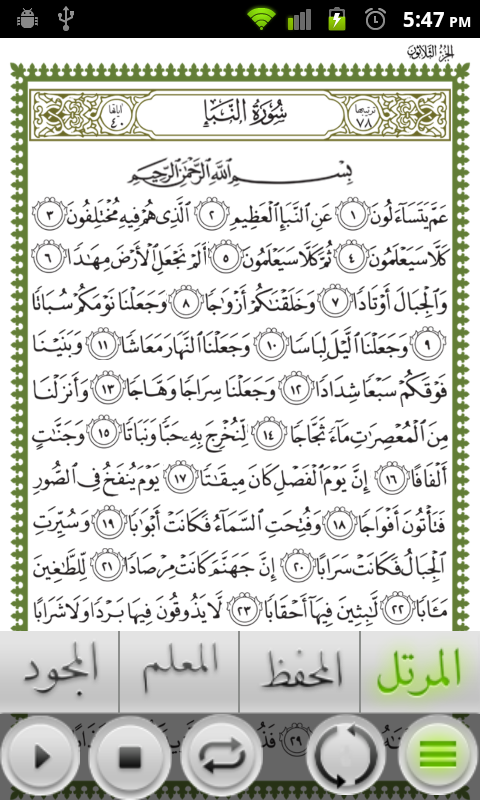 5:47 PM
الجزء الثلاثون
ترتيبها ٧٨ سُورَةُ النَّبَإِ آياتها ٤٠
بِسْمِ اللَّهِ الرَّحْمَٰنِ الرَّحِيمِ
عَمَّ يَتَسَاءَلُونَ ١ عَنِ النَّبَإِ الْعَظِيمِ ٢ الَّذِي هُمْ فِيهِ مُخْتَلِفُونَ ٣
كَلَّا سَيَعْلَمُونَ ٤ ثُمَّ كَلَّا سَيَعْلَمُونَ ٥ أَلَمْ نَجْعَلِ الْأَرْضَ مِهَٰدًا ٦
وَالْجِبَالَ أَوْتَادًا ٧ وَخَلَقْنَٰكُمْ أَزْوَٰجًا ٨ وَجَعَلْنَا نَوْمَكُمْ سُبَاتًا
٩ وَجَعَلْنَا اللَّيْلَ لِبَاسًا ١٠ وَجَعَلْنَا النَّهَارَ مَعَاشًا ١١ وَبَنَيْنَا
فَوْقَكُمْ سَبْعًا شِدَادًا ١٢ وَجَعَلْنَا سِرَاجًا وَهَّاجًا ١٣ وَأَنْزَلْنَا
مِنَ الْمُعْصِرَٰتِ مَاءً ثَجَّاجًا ١٤ لِنُخْرِجَ بِهِ حَبًّا وَنَبَاتًا ١٥ وَجَنَّٰتٍ
أَلْفَافًا ١٦ إِنَّ يَوْمَ الْفَصْلِ كَانَ مِيقَٰتًا ١٧ يَوْمَ يُنْفَخُ فِي الصُّورِ
فَتَأْتُونَ أَفْوَاجًا ١٨ وَفُتِحَتِ السَّمَاءُ فَكَانَتْ أَبْوَٰبًا ١٩ وَسُيِّرَتِ
الْجِبَالُ فَكَانَتْ سَرَابًا ٢٠ إِنَّ جَهَنَّمَ كَانَتْ مِرْصَادًا ٢١ لِلطَّٰغِينَ
مَـَٔابًا ٢٢ لَٰبِثِينَ فِيهَا أَحْقَابًا ٢٣ لَا يَذُوقُونَ فِيهَا بَرْدًا وَلَا شَرَابًا
المرتل المحفظ المعلم المجود
٢٩